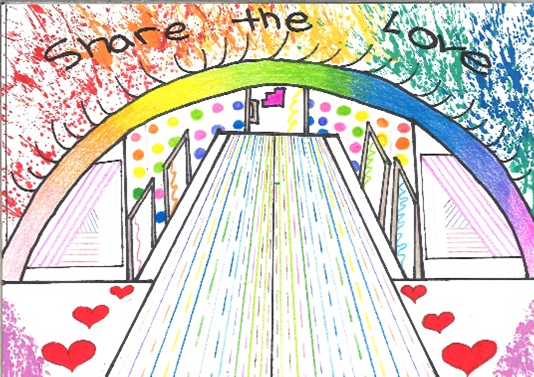 Share the Love